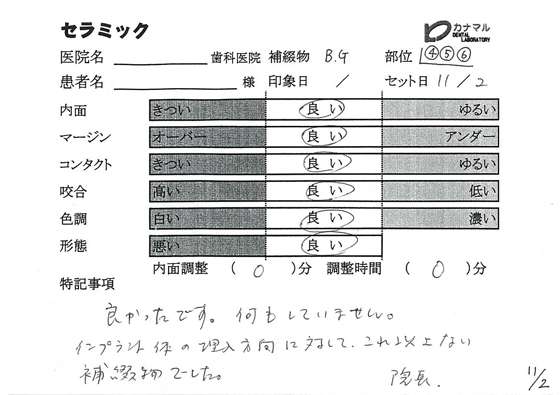 セラミック
カナマル
DENTAL LABORATORY
医院名 歯科医院 補綴物 B.G 部位 ④⑤⑥
患者名 様 印象日 / セット日 11/2
内面 きつい 良い ゆるい
マージン オーバー 良い アンダー
コンタクト きつい 良い ゆるい
咬合 高い 良い 低い
色調 白い 良い 濃い
形態 悪い 良い
内面調整 ( 0 )分 調整時間 ( 0 )分
特記事項
良かったです。何もしていません。
インプラント体の埋入方向に対して、これ以上ない
補綴物でした。 院長. 11/2